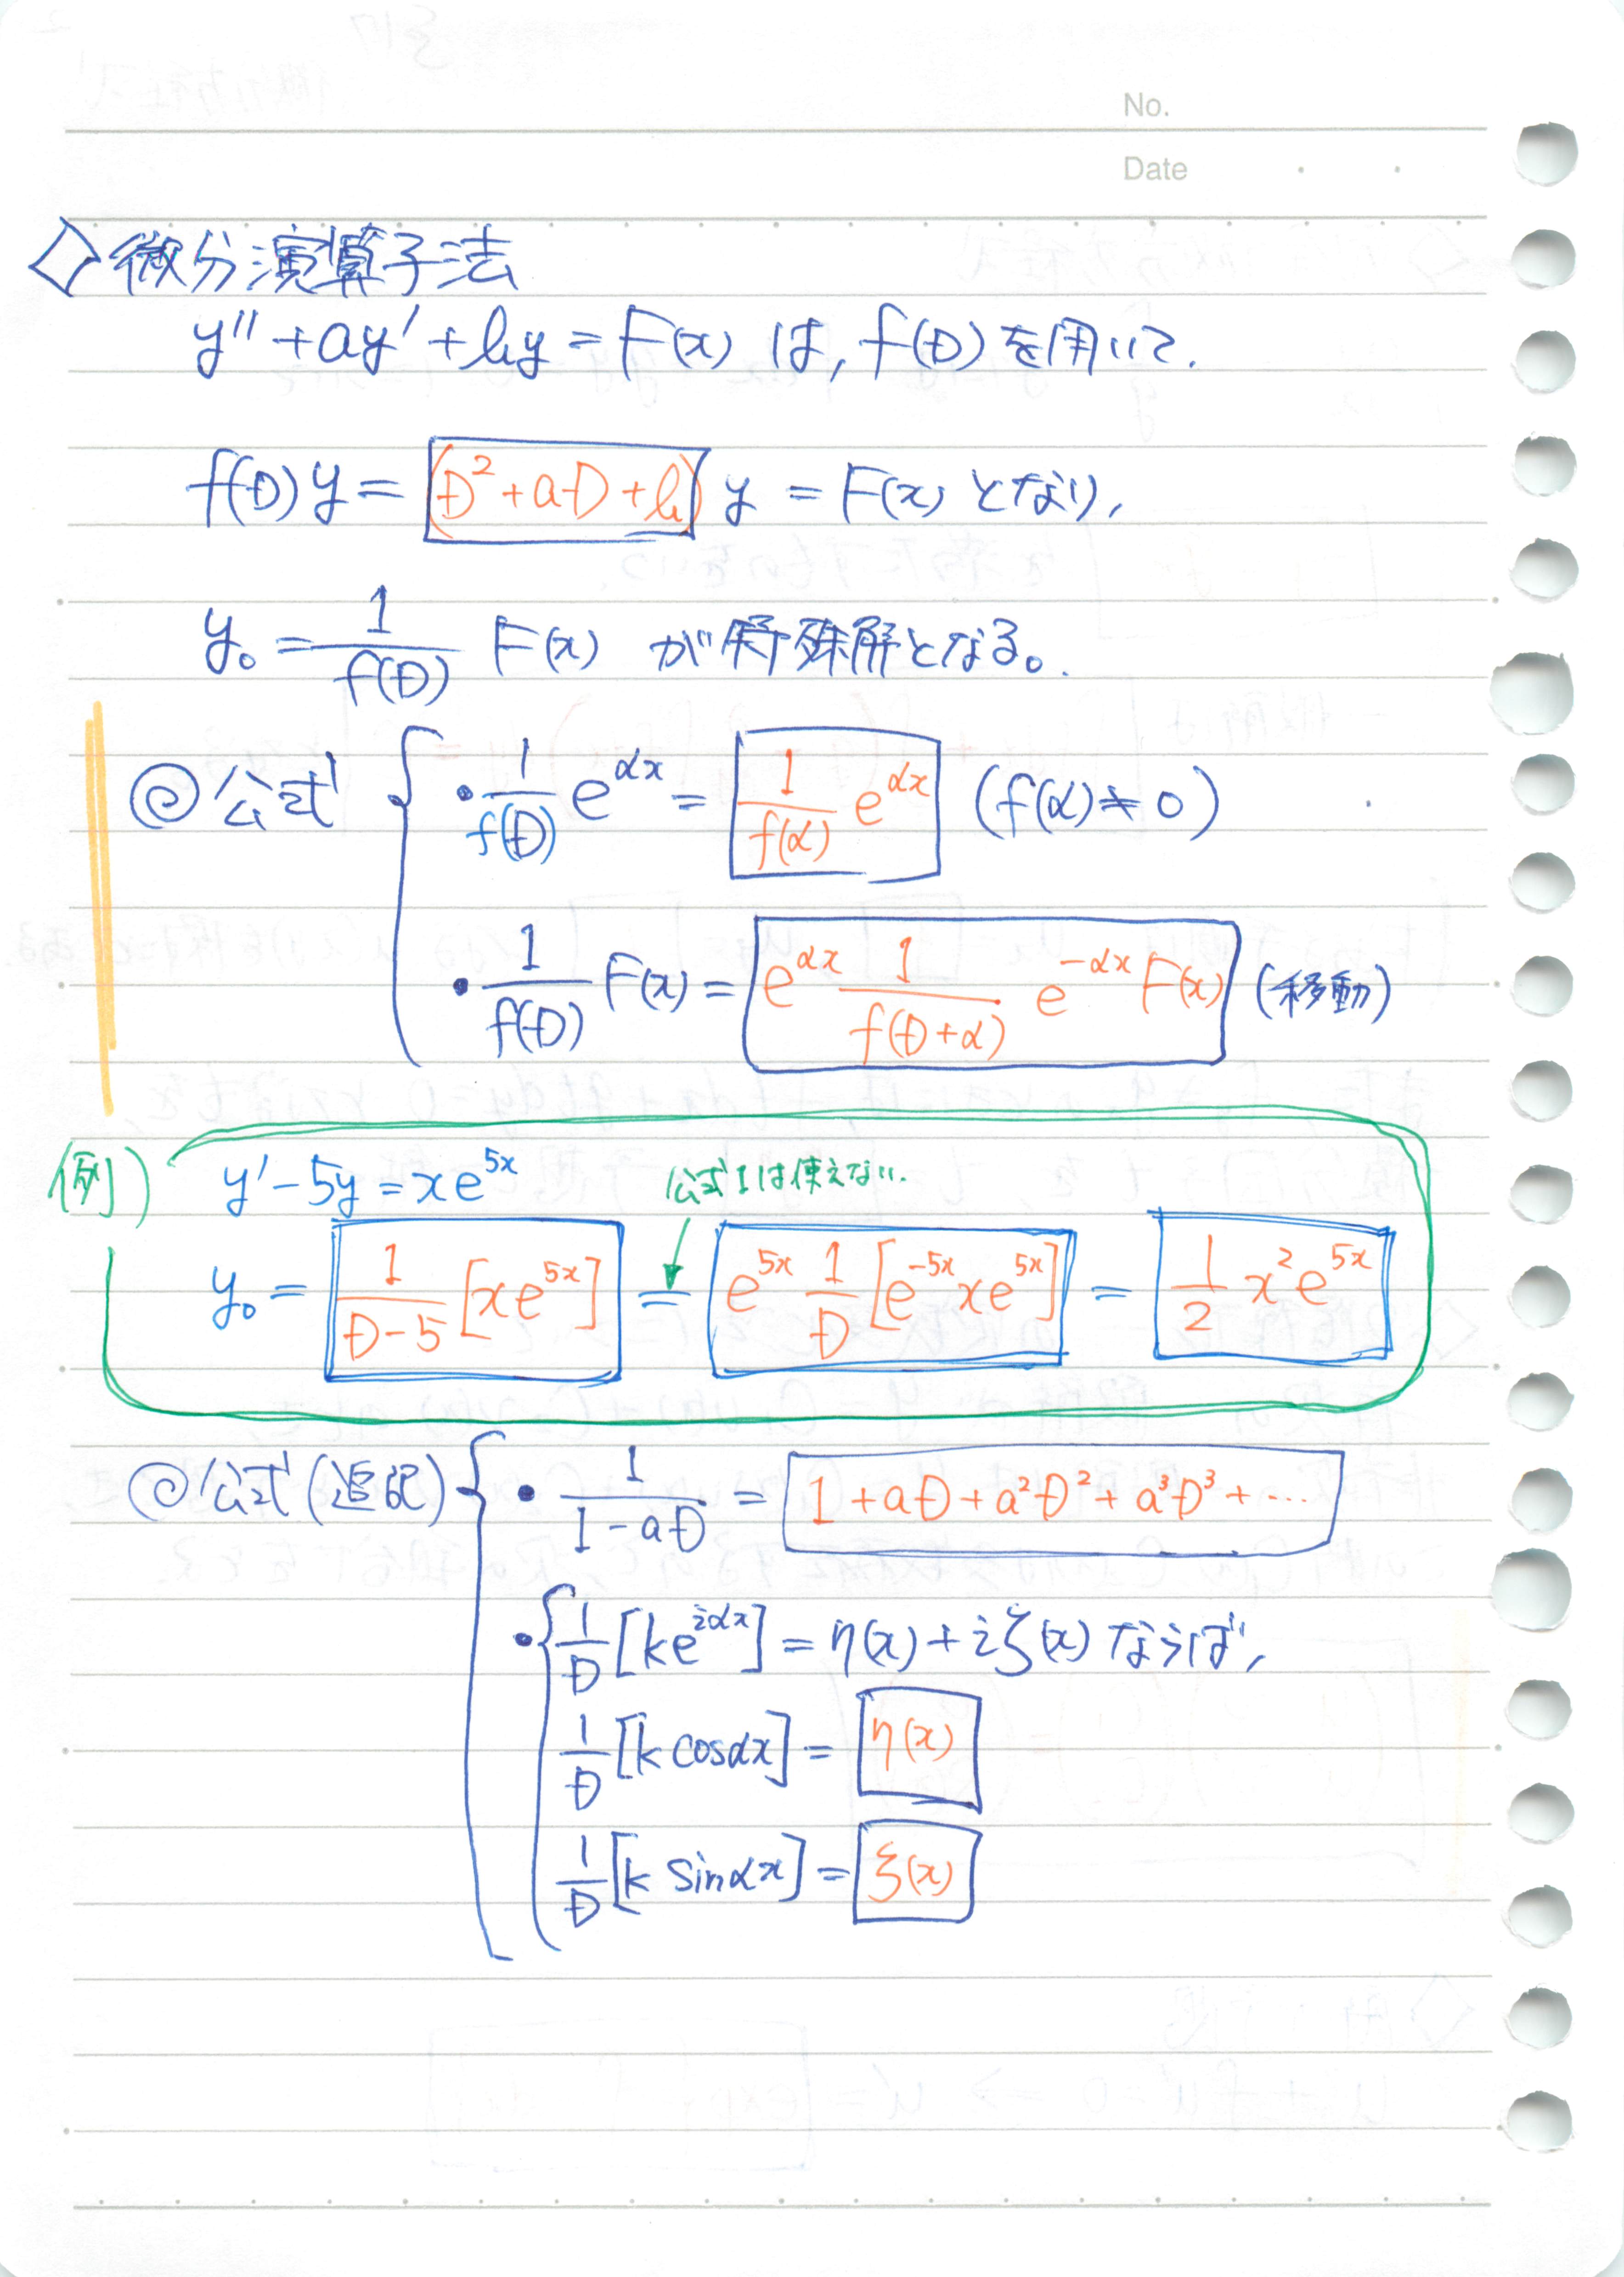 No.
Date
◇微分演算子法
y'' + ay' + by = F(x) は, f(D)を用いて.
f(D)y = (D² + aD + b) y = F(x) となり,
y₀ = 1/f(D) F(x) が特殊解となる。
◎公式 { • 1/f(D) e^{αx} = 1/f(α) e^{αx} (f(α)≠0)
• 1/f(D) F(x) = e^{αx} 1/f(D+α) e^{-αx} F(x) (移動)
(例) y' - 5y = xe^{5x} 公式1は使えない.
y₀ = 1/(D-5) [xe^{5x}] = e^{5x} 1/D [e^{-5x} xe^{5x}] = 1/2 x² e^{5x}
◎公式(追記) { • 1/(1-aD) = 1 + aD + a²D² + a³D³ + …
• { 1/D [ke^{iαx}] = η(x) + iζ(x) ならば,
1/D [k cosαx] = η(x)
1/D [k sinαx] = ζ(x)